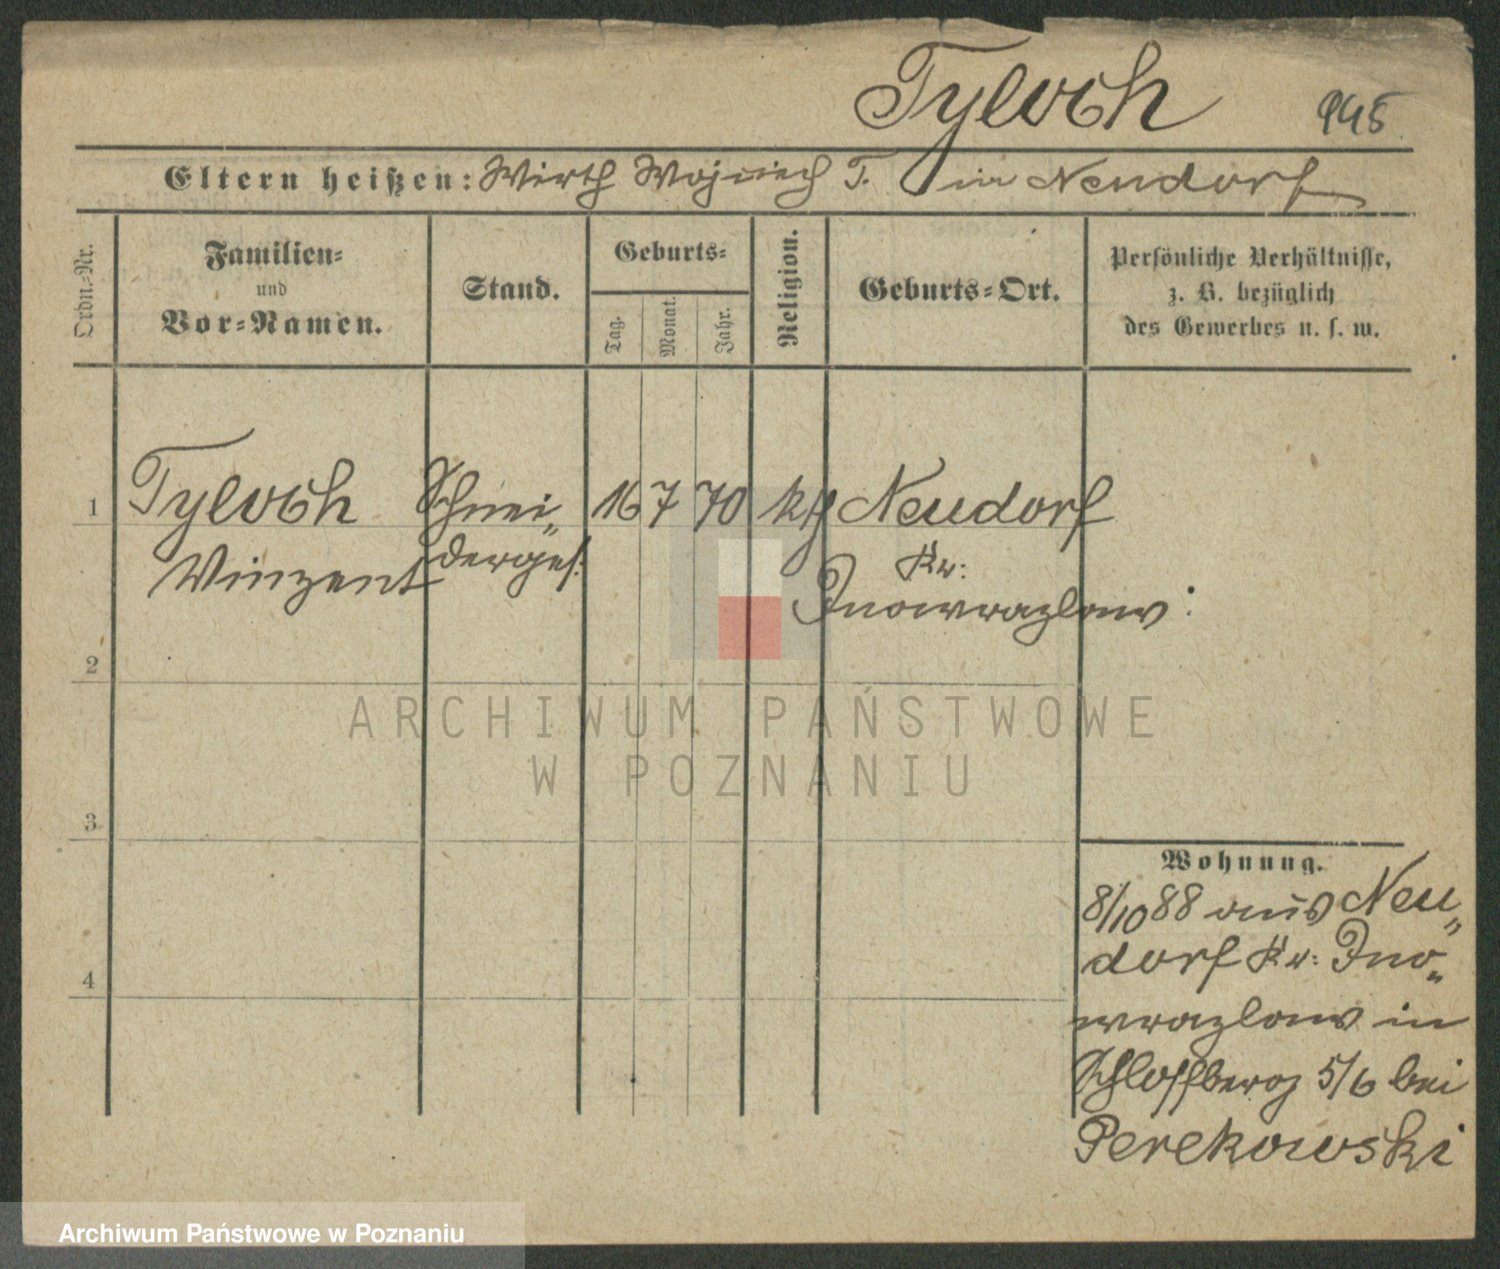 Tyloch 945
Eltern heißen: Wirth Wojciech T. in Neudorf
Ordn.-Nr.
Familien-
und
Vor-Namen.
Stand.
Geburts-
Tag.
Monat.
Jahr.
Religion.
Geburts-Ort.
Persönliche Verhältnisse,
z. B. bezüglich
des Gewerbes u. s. w.
1 Tyloch Schnei- 16 7 70 kth Neudorf
Vinzent derges. Kr:
Inowrazlaw:
2
ARCHIWUM PAŃSTWOWE
W POZNANIU
3
Wohnung.
8/10 88 aus Neu-
dorf Kr: Ino-
4
wrazlaw in
Schloßberg 5/6 bei
Perekowski
Archiwum Państwowe w Poznaniu